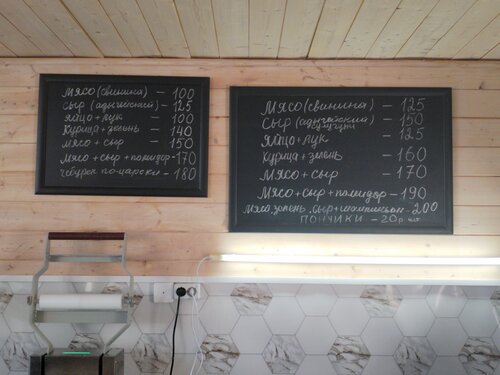 Мясо (свинина) - 100
Сыр (адыгейский) - 125
Яйцо + лук - 100
Курица + зелень - 140
Мясо + сыр - 150
Мясо + сыр + помидор - 170
Чебурек по-царски - 180
Мясо (свинина) - 125
Сыр (адыгейский) - 150
сулугуни
Яйцо + лук - 125
Курица + зелень - 160
Мясо + сыр - 170
Мясо + сыр + помидор - 190
Мясо, зелень, сыр + шампиньон - 200
Пончики - 20 р шт